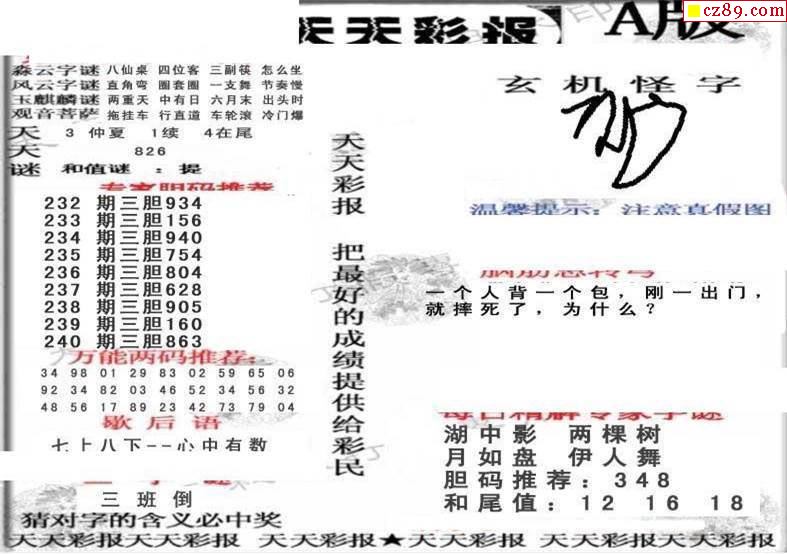 天天彩报 A版
cz89.com
淼云字谜 八仙桌 四位客 三副筷 怎么坐
风云字谜 直角弯 圈套圈 一支舞 节奏慢
玉麒麟谜 两重天 中有日 六月末 出头时
观音菩萨 拖挂车 行直道 车轮滚 冷门爆
天 3 仲夏 1续 4在尾
天 826
谜 和值谜：提
专家胆码推荐
232 期三胆934
233 期三胆156
234 期三胆940
235 期三胆754
236 期三胆804
237 期三胆628
238 期三胆905
239 期三胆160
240 期三胆863
万能两码推荐：
34 98 01 29 83 02 59 65 06
92 34 82 03 46 52 34 56 32
48 56 17 89 23 42 73 79 04
歇后语
七上八下--心中有数
三班倒
猜对字的含义必中奖
天天彩报 把最好的成绩提供给彩民
玄机怪字
温馨提示：注意真假图
脑筋急转弯
一个人背一个包，刚一出门，
就摔死了，为什么？
每日精解专家字谜
湖中影 两棵树
月如盘 伊人舞
胆码推荐：348
和尾值：12 16 18
天天彩报天天彩报 天天彩报★天天彩报 天天彩报天天彩报